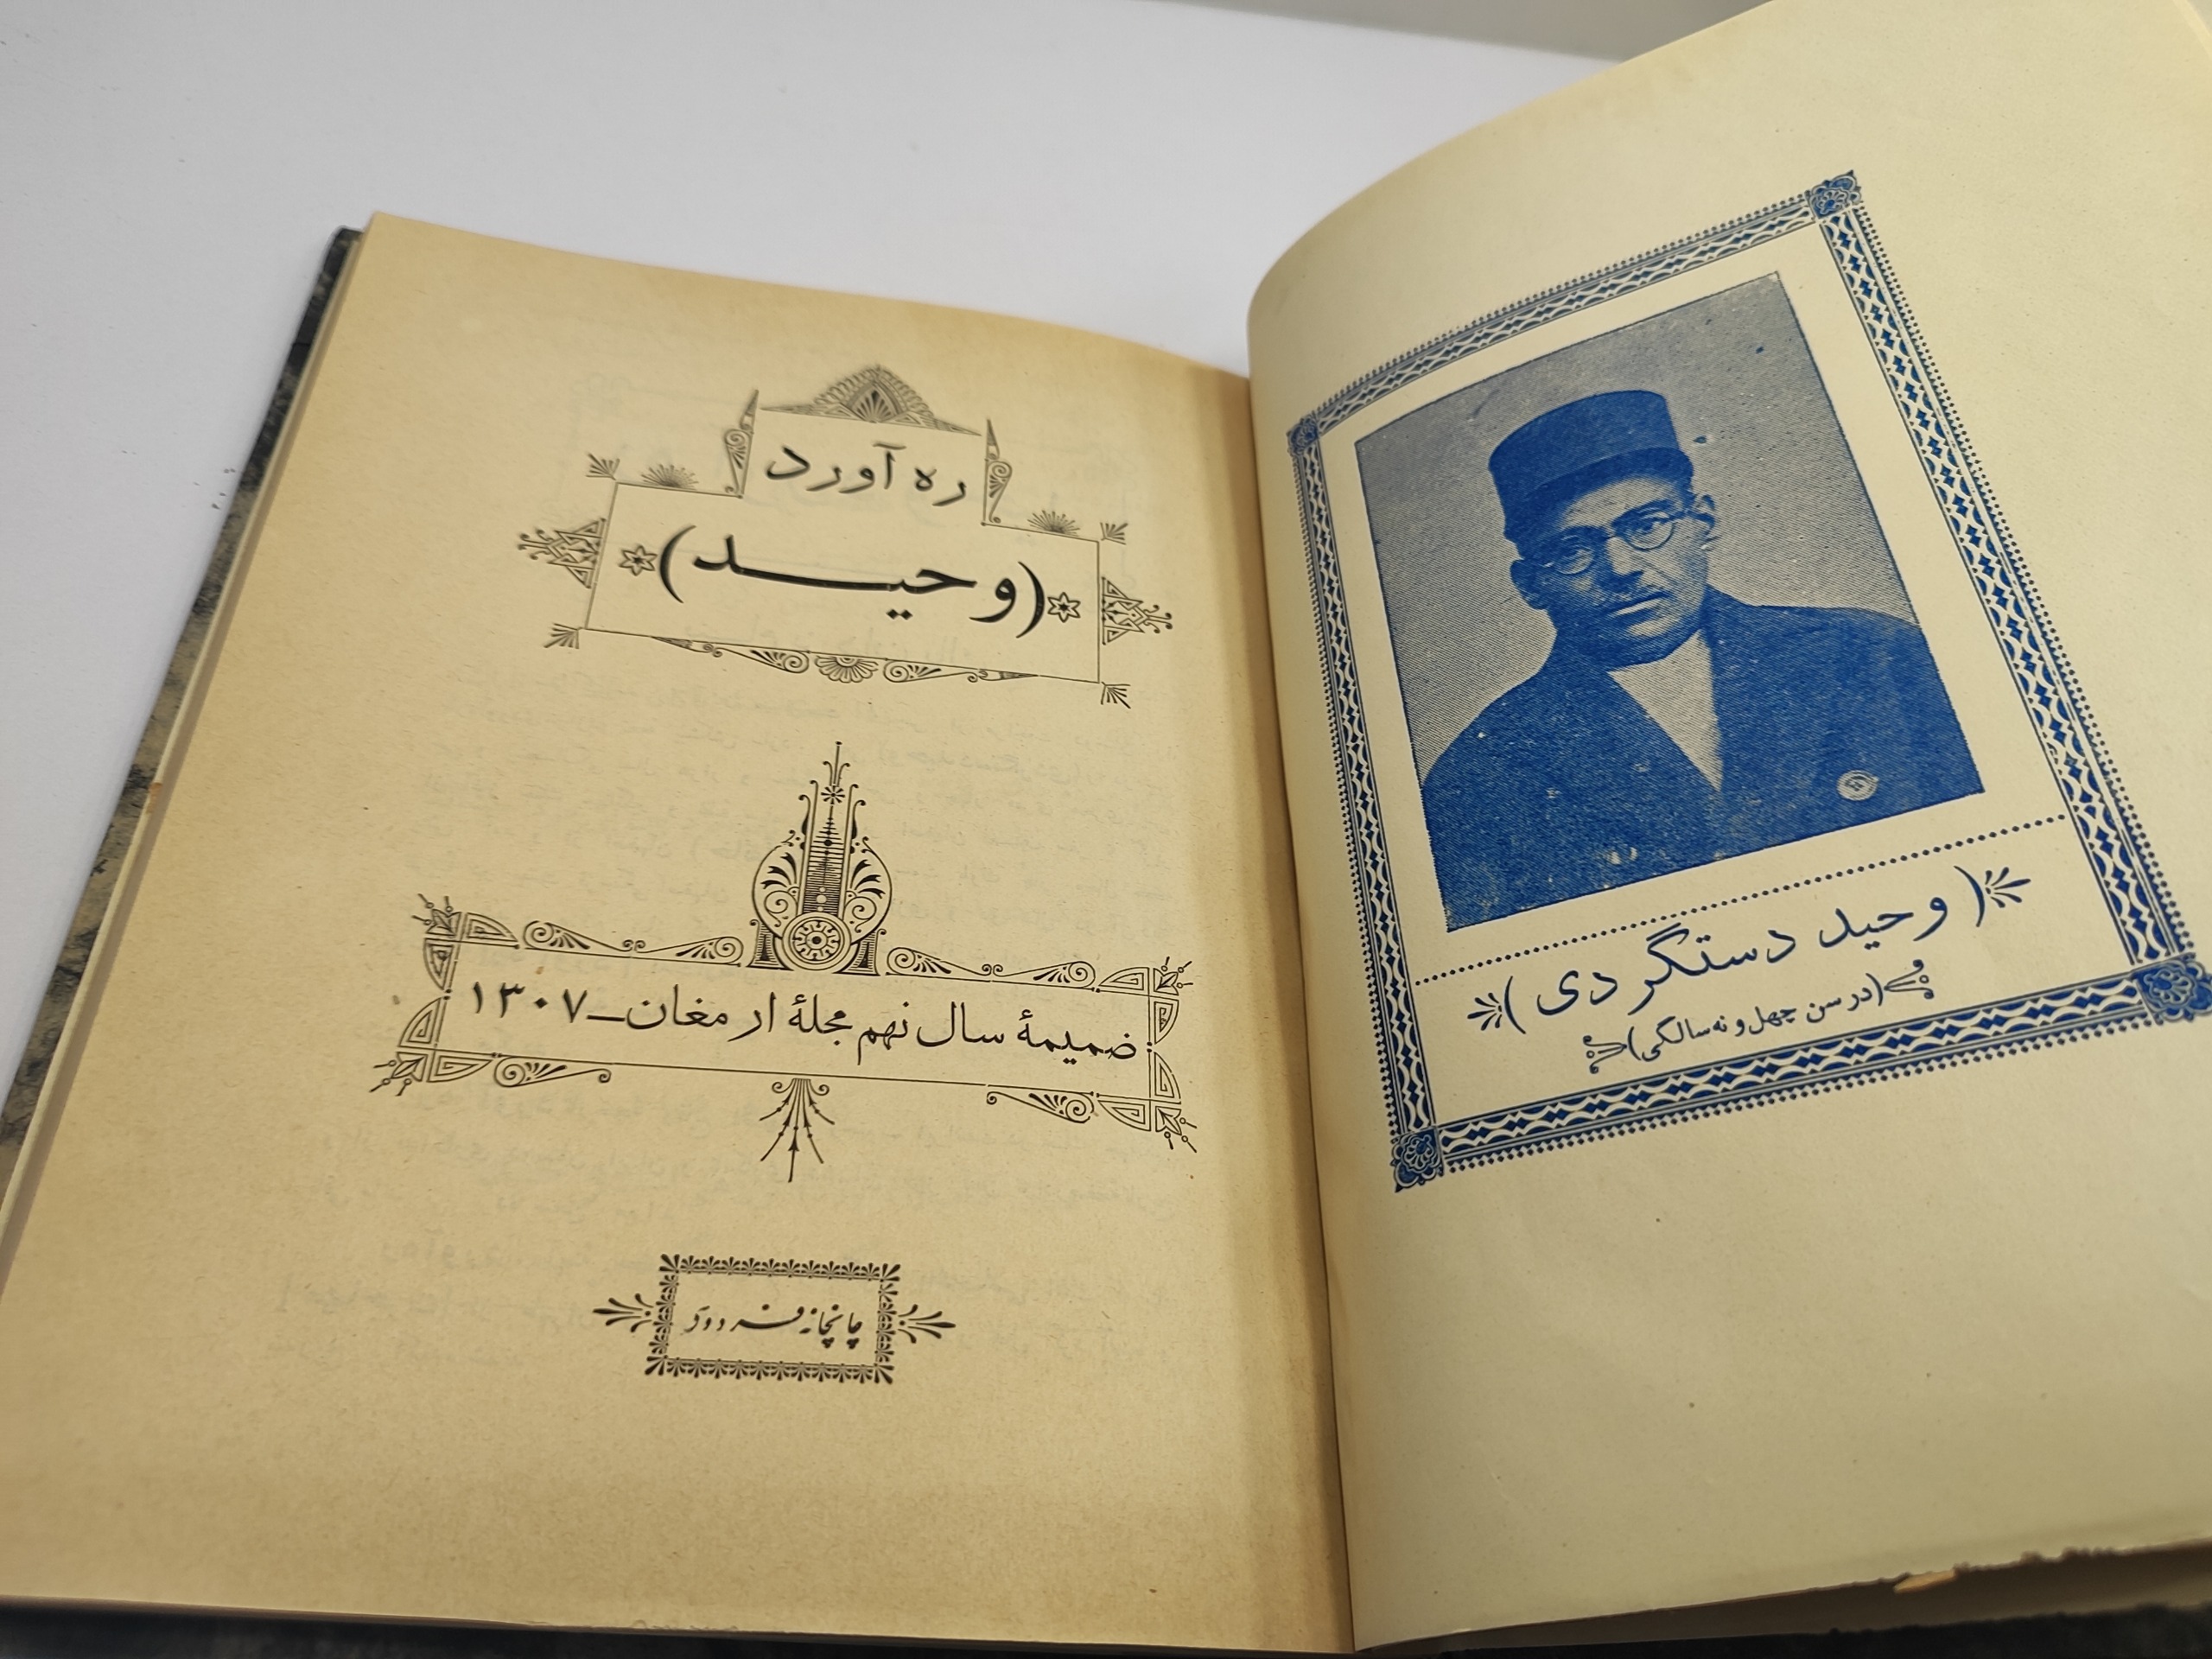 وحید دستگردی
(در سن چهل و نه سالگی)
ره آورد
(وحیـد)
ضمیمهٔ سال نهم مجلهٔ ارمغان ـ ۱۳۰۷
چاپخانه فردوسی